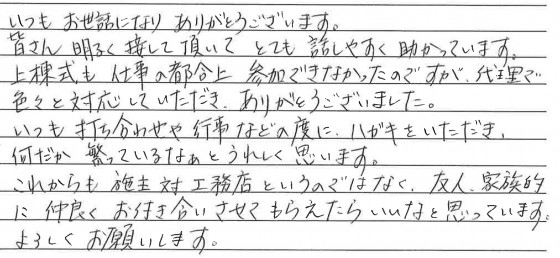 いつも お世話になり ありがとうございます。
皆さん 明るく 接して 頂いて とても 話しやすく 助かっています。
上棟式も 仕事の都合上 参加できなかったのですが、代理で
色々と対応していただき、ありがとうございました。
いつも 打ち合わせや 行事などの度に、ハガキをいただき、
何だか 繋っているなぁと うれしく 思います。
これからも 施主 対 工務店 というのではなく、友人、家族的
に 仲良く お付き合い させて もらえたら いいなと 思っています。
よろしく お願いします。